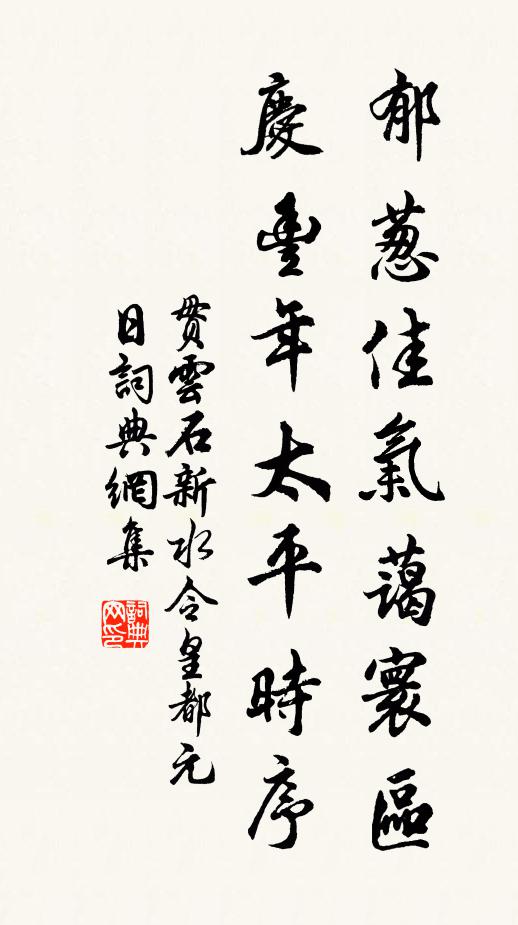 郁葱佳氣藹寰區
慶豐年太平時序
貫雲石新水令皇都元
日詞典網集
詞典網印